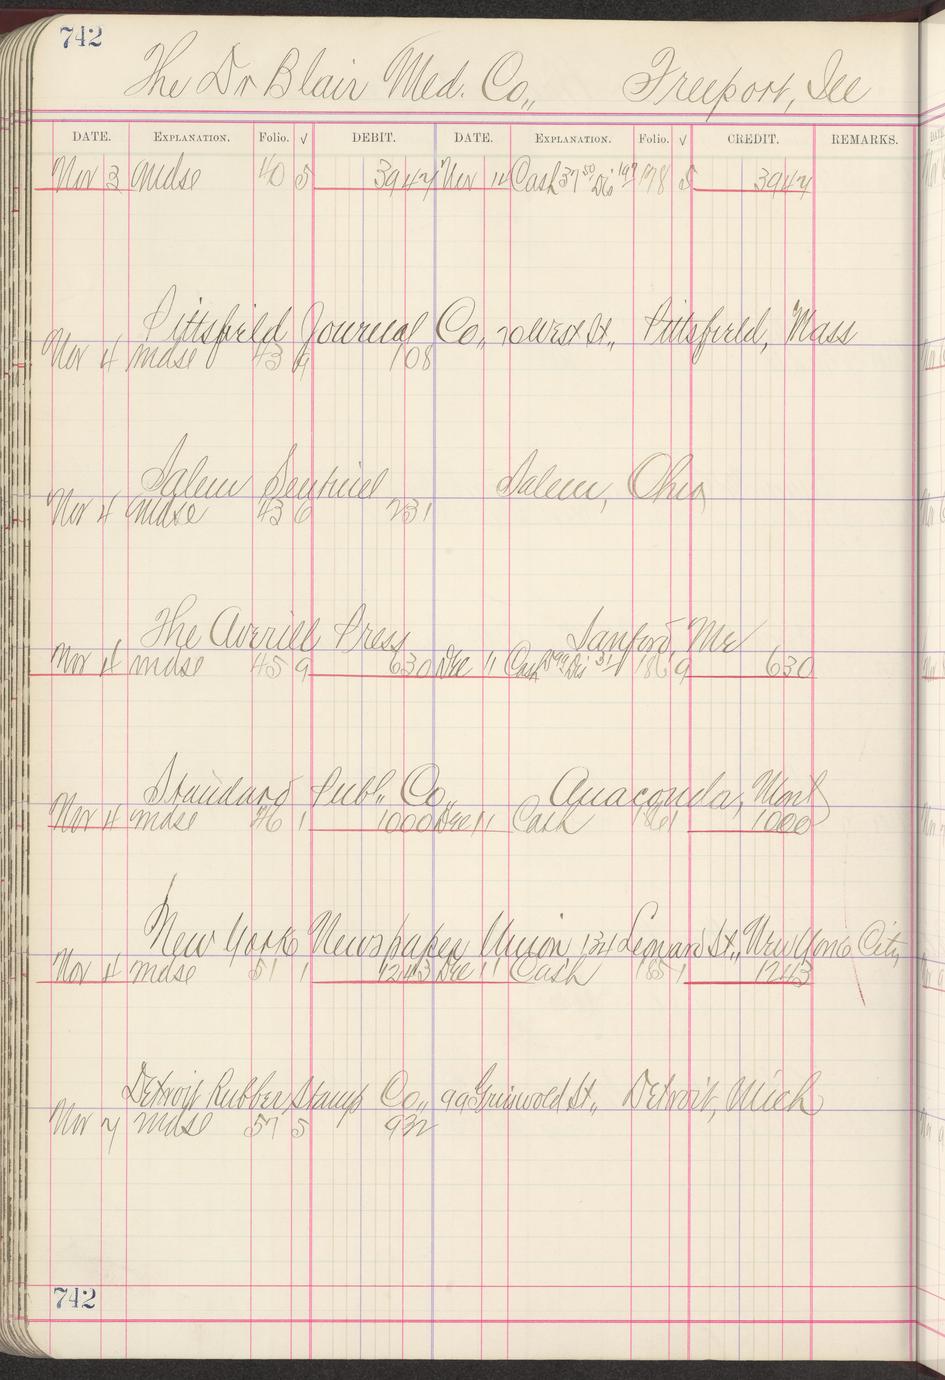 742
The Dr Blair Med. Co., Freeport, Ill
DATE. EXPLANATION. Folio. √ DEBIT. DATE. EXPLANATION. Folio. √ CREDIT. REMARKS.
Nov 3 Mdse 40 5 3947 Nov 14 Cash 37 50 Dis 1 97 178 5 3947
Pittsfield Journal Co., 70 West St., Pittsfield, Mass
Nov 4 Mdse 43 9 108
Salem Sentinel Salem, Ohio
Nov 4 Mdse 43 6 231
The Averill Press Sanford, Me
Nov 4 Mdse 45 9 630 Dec 11 Cash 5 99 Dis 31 186 9 630
Standard Publ. Co., Anaconda, Mont
Nov 4 Mdse 46 1 1000 Dec 11 Cash 186 1 1000
New York Newspaper Union 134 Leonard St., New York City
Nov 4 Mdse 51 1 1243 Dec 11 Cash 185 1 1243
Detroit Rubber Stamp Co., 99 Griswold St., Detroit, Mich
Nov 7 Mdse 57 5 932
742